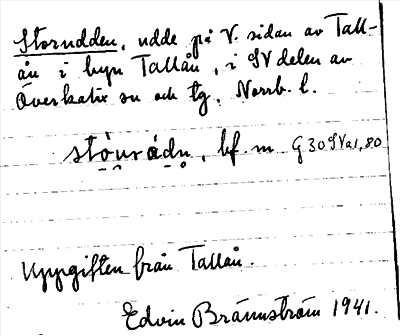 Storudden, udde på V. sidan av Tall-
ån i byn Tallån, i SV delen av
Överkalix sn och tg, Norrb. l.
stòurádn, bf. m G 30 SVa1, 80
Uppgiften från Tallån.
Edvin Brännström 1941.